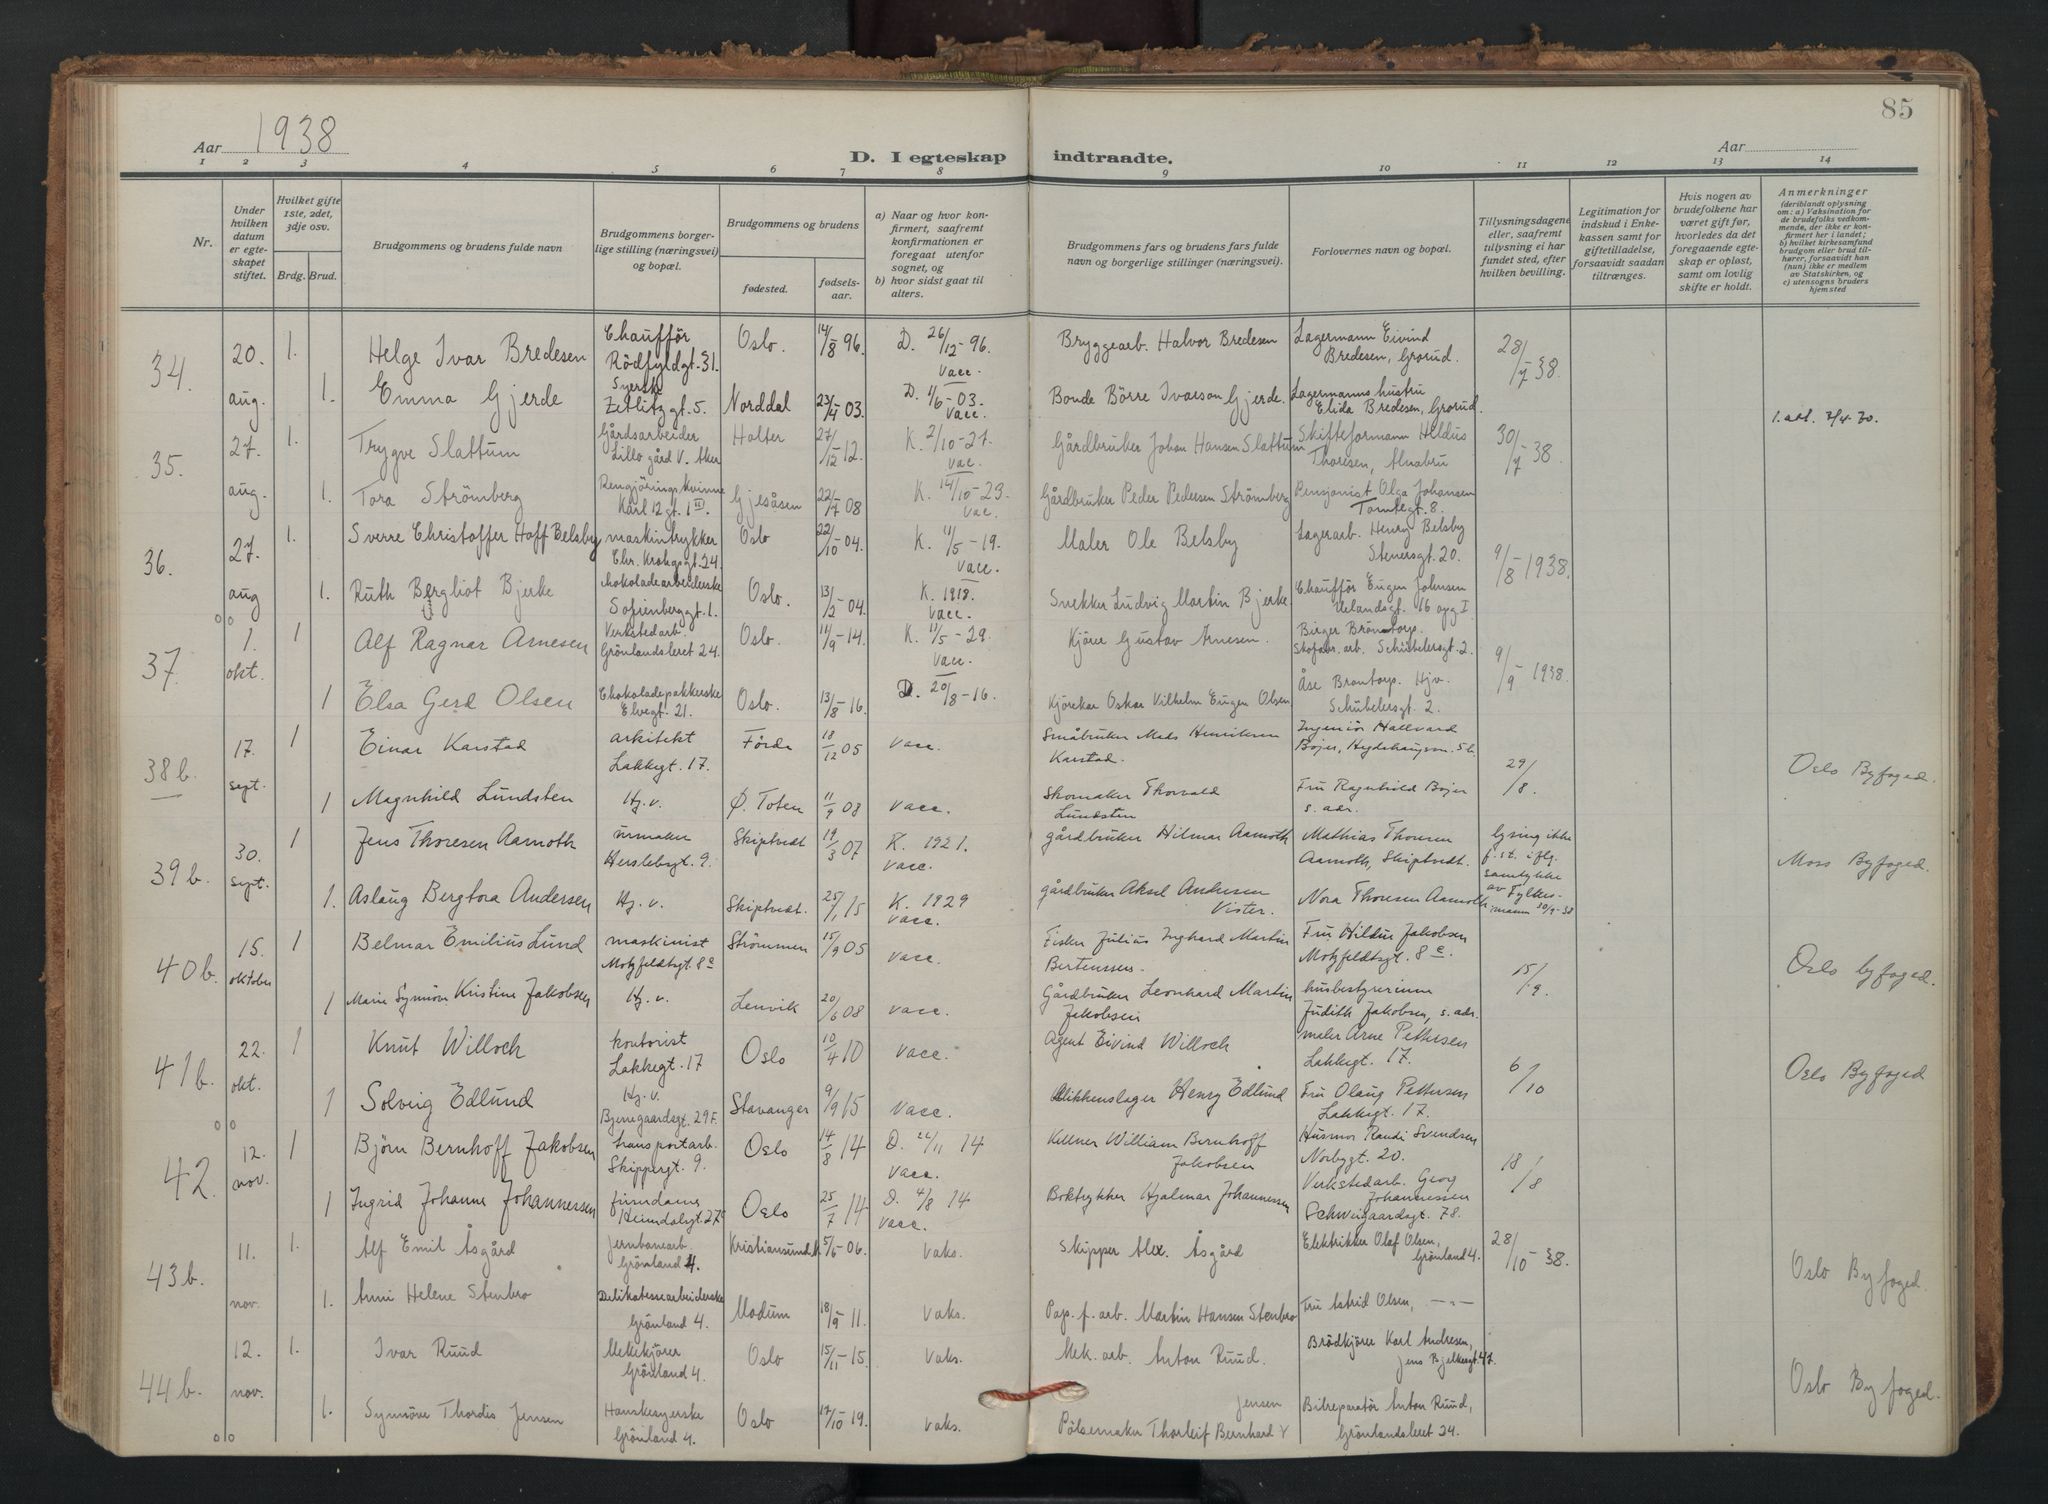 85
Aar 1938
Aar
D. I egteskap indtraadte.
1 2 3 4 5 6 7 8 9 10 11 12 13 14
Nr.
Under hvilken datum er egteskapet stiftet.
Hvilket gifte 1ste, 2det, 3dje osv.
Brdg. Brud.
Brudgommens og brudens fulde navn
Brudgommens borgerlige stilling (næringsvei) og bopæl.
Brudgommens og brudens
fødested. fødselsaar.
a) Naar og hvor konfirmert, saafremt konfirmationen er foregaat utenfor sognet, og
b) hvor sidst gaat til alters.
Brudgommens fars og brudens fars fulde navn og borgerlige stillinger (næringsvei).
Forlovernes navn og bopæl.
Tillysningsdagene eller, saafremt tillysning ei har fundet sted, efter hvilken bevilling.
Legitimation for indskud i Enkekassen samt for giftetilladelse, forsaavidt saadan tiltrænges.
Hvis nogen av brudefolkene har været gift før, hvorledes da det foregaaende egteskap er opløst, samt om lovlig skifte er holdt.
Anmerkninger (deriblandt oplysning om: a) Vaksination for de brudefolks vedkommende, der ikke er konfirmert her i landet; b) hvilket kirkesamfund brudgom eller brud tilhører, forsaavidt han (hun) ikke er medlem av Statskirken, og c) utensogns bruders hjemsted
34. 20. aug. 1. Helge Ivar Bredesen Chaufför Rödfyldgt. 31. Oslo. 14/8 96. D. 26/12-96. vacc. Bryggearb. Halvor Bredesen Lagermann Eivind Bredesen, Grorud. 28/7 38.
1. Emma Gjerde Syerske Zetlitzgt. 5. Norddal 23/4 03. D. 1/6-03. vacc. Bonde Börre Ivarson Gjerde. Lagermanns hustru Elida Bredesen, Grorud.
35. 27. aug. 1. Trygve Slattum Gårdsarbeider Lillo gård V. Aker Holter 27/12 12. K. 2/10-27. vac. Gårdbruker Johan Hansen Slattum Skifteformann Heldus Thoresen, Alnabru 30/7 38.
1. Tora Strömberg Rengjöringskvinne Karl 12 gt. 1 III. Gjesåsen 22/7 08 K. 14/10-23. vac. Gårdbruker Peder Pedersen Strömberg Pensjonist Olga Johansen Tomtegt. 8.
36. 27. aug 1. Sverre Christoffer Hoff Belsby maskintrykker Chr. Krohgsgt. 24 Oslo 22/10 04. K. 11/5-19. vacc. Maler Ole Belsby Lagerarb. Henry Belsby Stenersgt. 20. 9/8-1938.
1. Ruth Bergliot Bjerke chokoladearbeiderske Sofienberggt. 1. Oslo. 13/2-04. K. 1918. vacc. Snekker Ludvig Martin Bjerke Chaufför Eugen Johnsen Uelandsgt. 16 opg I
37. 1. okt. 1 Alf Ragnar Arnesen Verkstedarb. Grönlandsleret 24. Oslo. 11/9-14. K. 11/5-29. vacc. Kjörer Gustav Arnesen. Birger Bröntorp. Skofabr. arb. Schübelersgt. 2. 9/9-1938.
1 Elsa Gerd Olsen Chokoladepakkerske Elvegt. 21. Oslo. 13/8-16. D. 20/8-16. Kjörekar Oskar Vilhelm Eugen Olsen Åse Bröntorp. Hjv. Schübelersgt. 2.
38b. 17. sept. 1 Einar Karstad arkitekt Lakkegt. 17. Förde 18/12 05 vacc. Småbruker Mads Henriksen Karstad. Ingeniör Hallvard Bojer, 29/8. Oslo Byfoged.
1 Magnhild Lundsten Hj. v. Ø. Toten 11/9 08 vacc. Skomaker Thorvald Lundsten Fru Ragnhild Bojer s. adr.
39b. 30. sept. 1 Jens Thoresen Aamoth urmaker Herslebsgt. 9. Skiptvedt 19/3 07 K. 1921. vacc. gårdbruker Hilmar Aamoth Mathias Thoresen Aamoth, Skiptvedt. lysing ikke f. st. iflg. samtykke av Fylkesmann 30/9-38 Moss Byfoged.
1. Aslaug Bergtora Andersen Hj. v. Skiptvedt. 25/1 15 K. 1929 vacc. gårdbruker Aksel Andersen Vister. Nora Thoresen Aamoth
40b. 15. oktober 1 Belmar Emilius Lund maskinist Motzfeldtsgt. 8c Strömmen 15/9 05 vacc. Fisker Julius Inghard Martin Berteussen. Fru Hildur Jakobsen Motzfeldtsgt. 8c. 15/9. Oslo byfoged.
1 Marie Synnöve Kristine Jakobsen Hj. v. Lenvik 20/6 08 vacc. Gårdbruker Leonhard Martin Jakobsen husbestyrerinne Judith Jakobsen, s. adr.
41b. 22. okt. 1 Knut Willoch kontorist Lakkegt. 17 Oslo 10/4 10 vacc. Agent Eivind Willoch maler Arne Pettersen Lakkegt. 17. 6/10 Oslo Byfoged
1 Solveig Edlund Hj. v. Bjerregaardsgt. 29F. Stavanger 9/9 15 vacc. Blikkenslager Henry Edlund Fru Olaug Pettersen Lakkegt. 17.
42. 12. nov. 1 Björn Bernhoff Jakobsen transportarb. Skippergt. 9. Oslo 14/8 14 D. 22/11 14 vacc. Kellner William Bernhoff Jakobsen Husmor Randi Svendsen Norbygt. 20. 18/8
1 Ingrid Johanne Johannessen Heimdalsgt. 27c Oslo 25/7 14 D. 4/8 14 vacc. Boktrykker Hjalmar Johannessen Verkstedarb. Georg Johannessen Schweigaardsgt. 78.
43b. 11. nov. 1. Alf Emil Åsgård Jernbanearb. Grönland 4 Kristiansund N. 5/6-06. Vaks. Skipper Alex. Åsgård Elektrikker Olaf Olsen, Grönland 4. 28/10-38. Oslo Byfoged.
1. Anni Helene Stenbro Delikatessearbeiderske Grönland 4. Modum 18/9-11. Vaks. Pap. f. arb. Martin Hansen Stenbro Fru Astrid Olsen, -"-
44b. 12. nov. 1. Ivar Ruud Melkekjörer Grönland 4. Oslo 15/11-15. Vaks. Mek. arb. Anton Ruud. Brödkjörer Karl Andresen, Jens Bjelkesgt. 47. Oslo Byfoged.
1. Synnöve Thordis Jensen Hanskesyerske Grönland 4. Oslo 17/10-19. Vaks. Pölsemaker Thorleif Bernhard Jensen Bilreparatör Anton Ruud, Grönlandsleret 24.